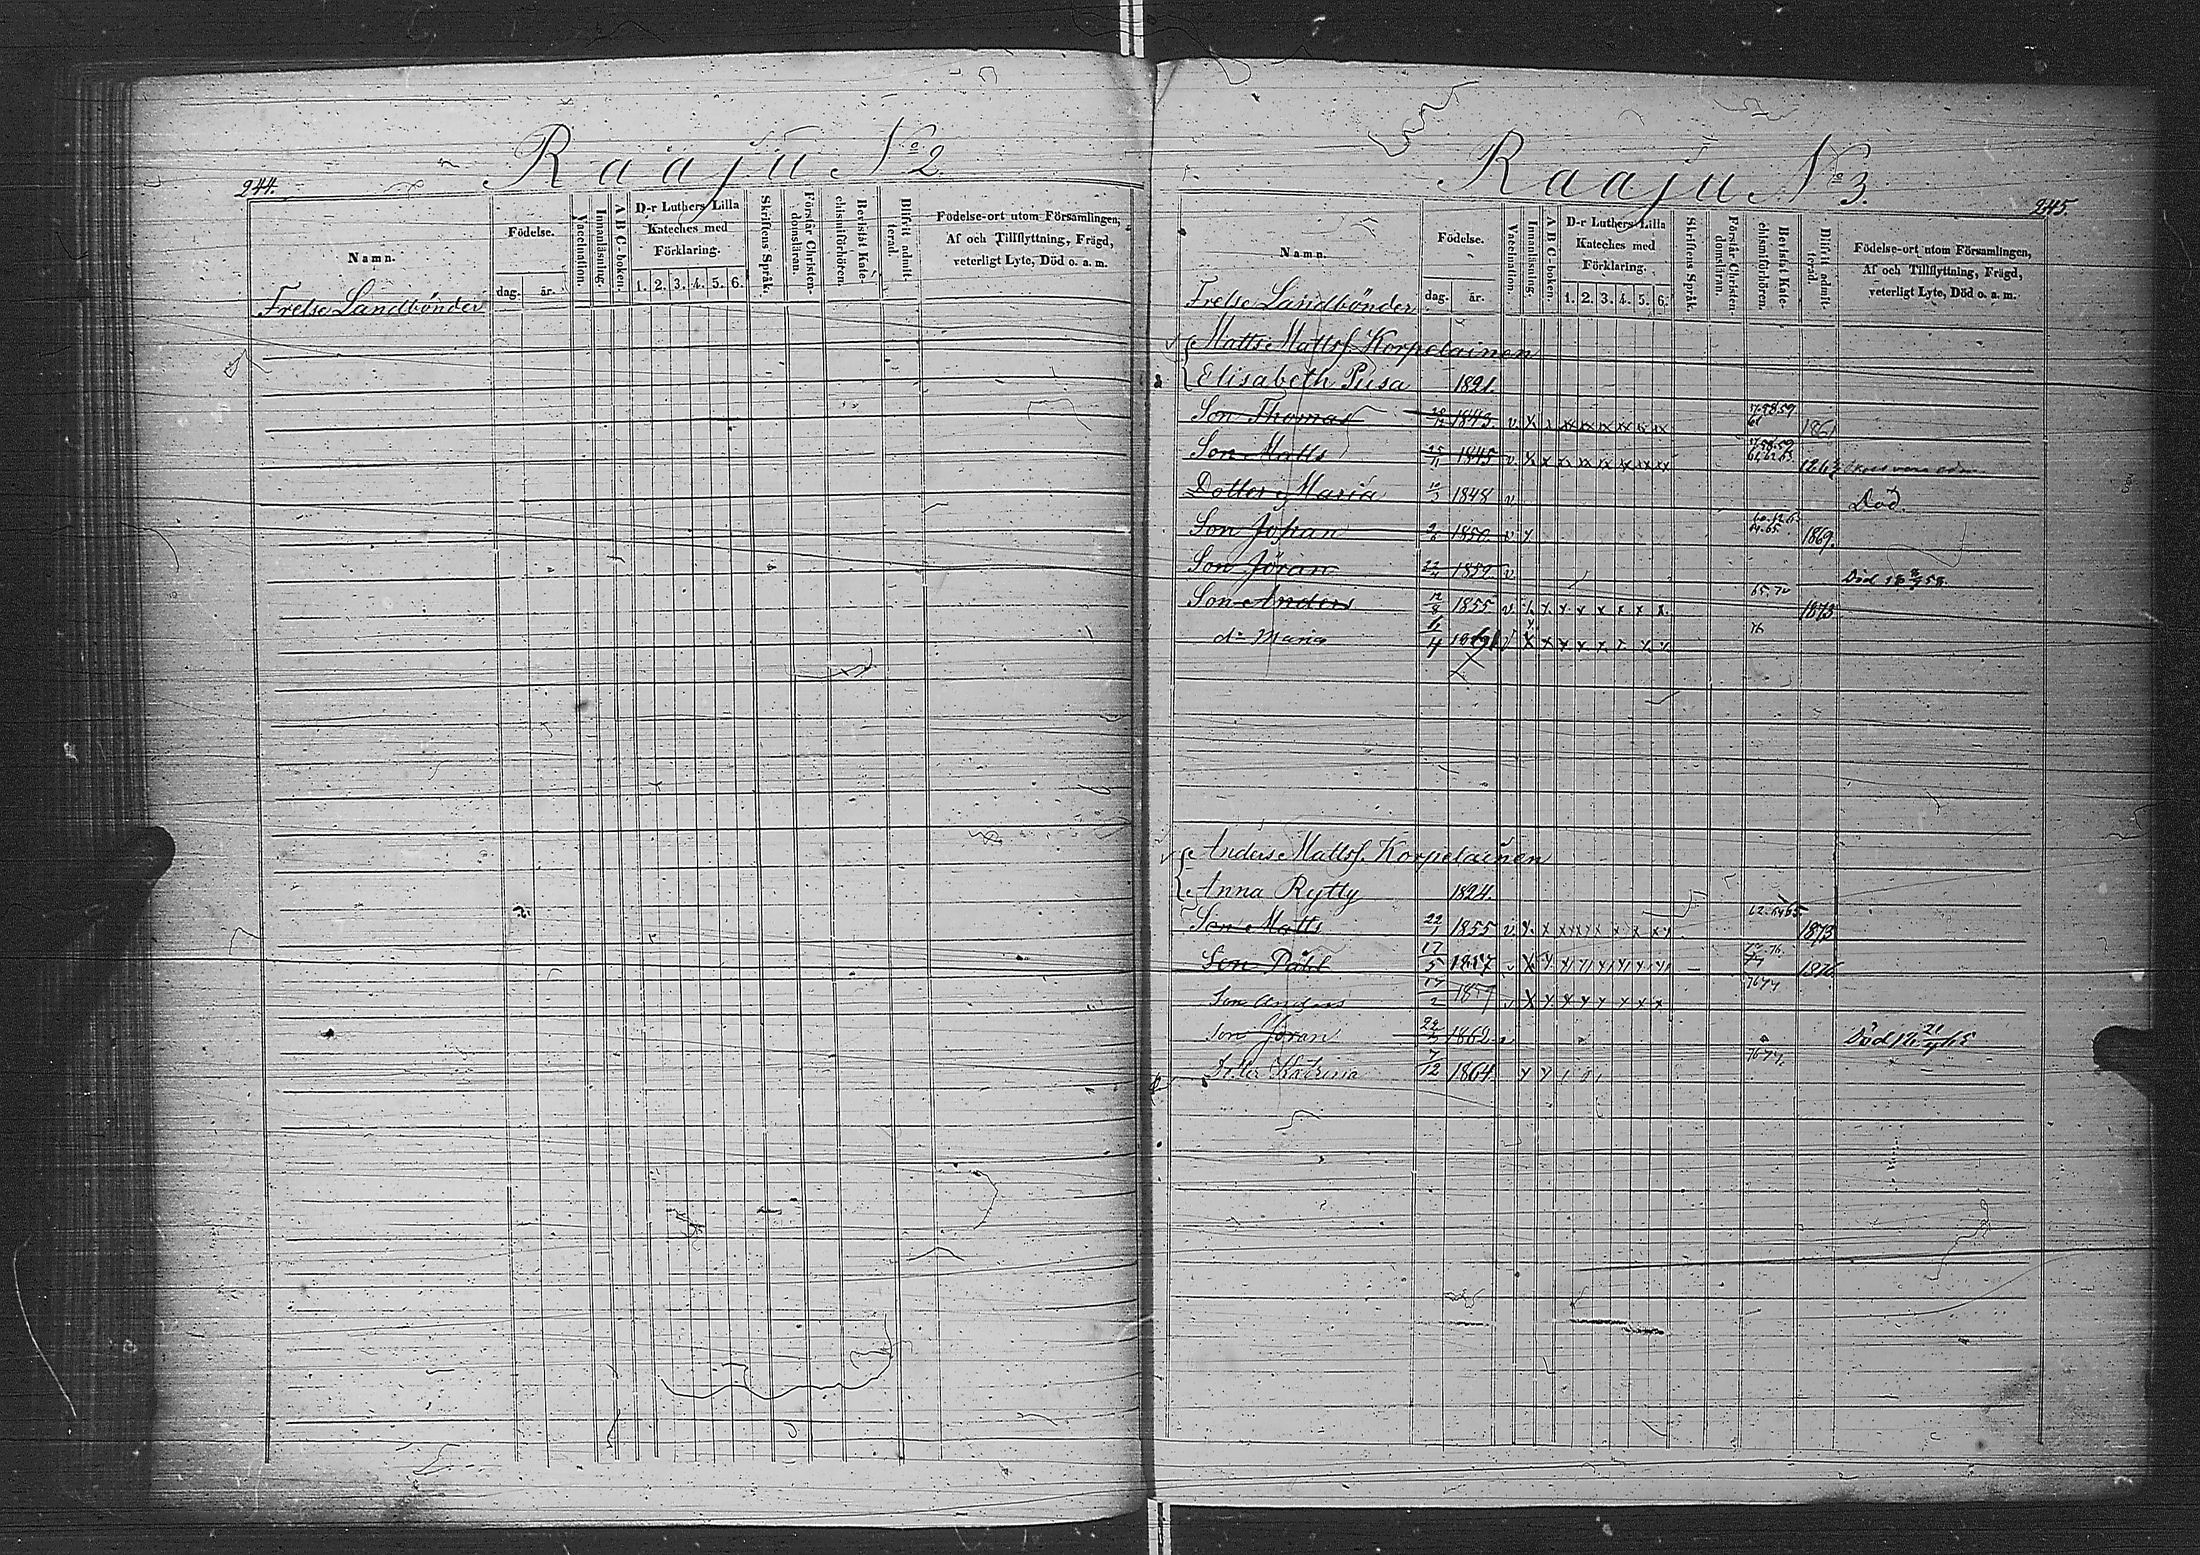 244.
Raaju No 2.
Namn.
Födelse.
dag.
år.
Vaccination.
Innanläsning.
A B C-boken.
D-r Luthers Lilla
Kateches med
Förklaring.
1. 2. 3. 4. 5. 6.
Skriftens Språk.
Förstår Christen-
domsläran.
Bevistat Kate-
chismiförhören.
Dilsvit admit-
terad.
Födelse-ort utom Församlingen,
Af och Tillflyttning, Frägd,
veterligt Lyte, Död o. a. m.
Frelse Landbönder
Raaju No 3.
245.
Namn.
Födelse.
dag.
år.
Vaccination.
Innanläsning.
A B C-boken.
D-r Luthers Lilla
Kateches med
Förklaring.
1. 2. 3. 4. 5. 6.
Skriftens Språk.
Förstår Christen-
domsläran.
Bevistat Kate-
chismiförhören.
Dilsvit admit-
terad.
Födelse-ort utom Församlingen,
Af och Tillflyttning, Frägd,
veterligt Lyte, Död o. a. m.
Frelse Landbönder
Matts Mattsf. Korpelainen
Elisabeth Pusa 1821.
Son Thomas 1843 v x x x x x x x 1861
Son Matts 25/11 1845 v x x x x x x x x
Dotter Maria 1848 v Död.
Son Johan 1850 v 1869.
Son Jöran 1852 v Död
Son Anders 12/8 1855 v x x x x x x x x 65.70 1873
dr Maria 6/4 x x x x x x x x 76
Anders Mattsf. Korpelainen
Anna Rytty 1824.
Son Matts 22/1 1855 v x x x x x x x x 1873
Son Påhl 17/5 1857 v x x x x x x x x 1876
Son Anders 17/2 x x x x x x x x 76 77
Son Jöran 1862 Död
Dotter Katrina 7/12 1864. 76 77.